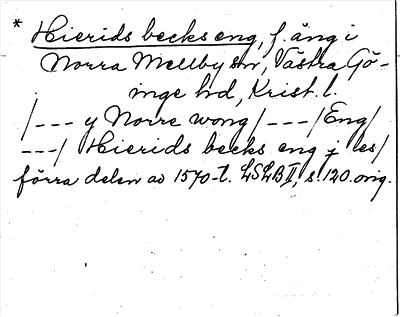 * Hierids becks eng, f. äng i
Norra Mellby sn, Västra Gö-
inge hd, Krist. l.
/--- y Norre wong /---/ Eng/
---/ Hierids becks eng j les/
förra delen av 1570-t. LSLB II, s. 120. orig.